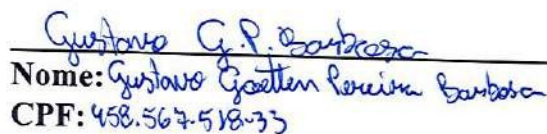 Gustavo G.P. Barbosa
Nome: Gustavo Gaetten Pereira Barbosa
CPF: 458.567.518-33